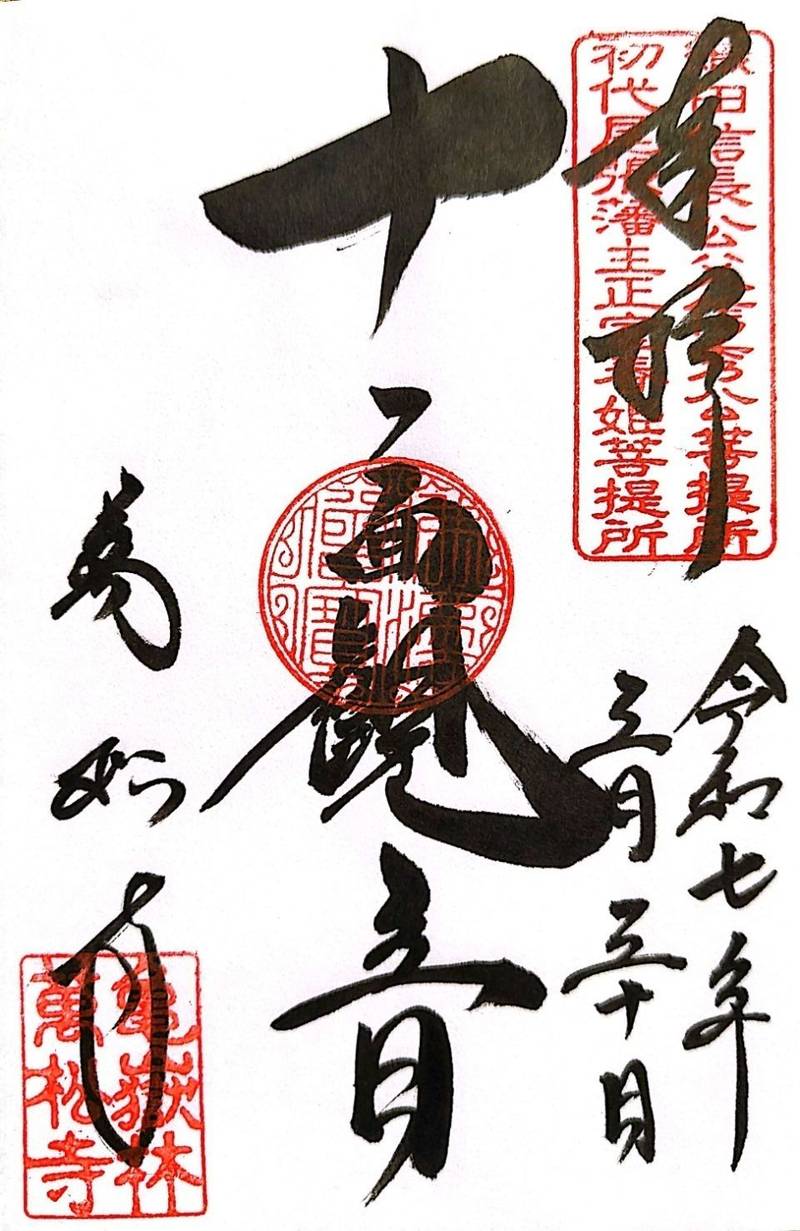 奉拝
織田信長公父信秀公菩提所
初代尾張藩主正室春姫菩提所
令和七年
三月三十日
十一面観音
萬松寺
亀嶽林
萬松寺